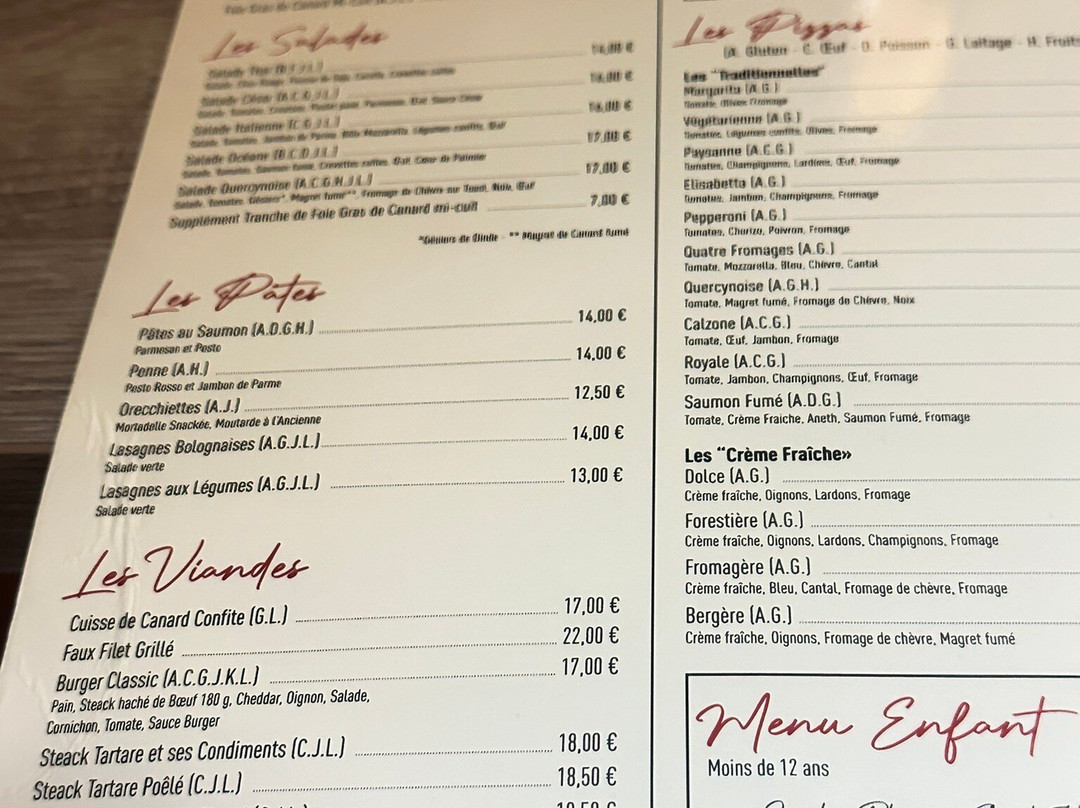 Les Salades
Salade Italienne (C.G.J.L.)
17,00 €
Salade Océane (B.C.D.J.L.)
17,00 €
Salade Quercynoise (A.C.G.H.J.L.)
7,00 €
Supplément Tranche de Foie Gras de Canard mi-cuit
*Gésiers de Dinde - ** Magret de Canard fumé
Les Pâtes
Pâtes au Saumon (A.D.G.H.) 14,00 €
Parmesan et Pesto
Penne (A.H.) 14,00 €
Pesto Rosso et Jambon de Parme
Orecchiettes (A.J.) 12,50 €
Mortadelle Snackée, Moutarde à l'Ancienne
Lasagnes Bolognaises (A.G.J.L.) 14,00 €
Salade verte
Lasagnes aux Légumes (A.G.J.L.) 13,00 €
Salade verte
Les Viandes
Cuisse de Canard Confite (G.L.) 17,00 €
Faux Filet Grillé 22,00 €
Burger Classic (A.C.G.J.K.L.) 17,00 €
Pain, Steack haché de Bœuf 180 g, Cheddar, Oignon, Salade,
Cornichon, Tomate, Sauce Burger
Steack Tartare et ses Condiments (C.J.L.) 18,00 €
Steack Tartare Poêlé (C.J.L.) 18,50 €
Les Pizzas
(A. Gluten - C. Œuf - D. Poisson - G. Laitage - H. Fruits
Les "Traditionnelles"
Margarita (A.G.)
Tomate, Olives, Fromage
Végétarienne (A.G.)
Tomates, Légumes confits, Olives, Fromage
Paysanne (A.C.G.)
Tomates, Champignons, Lardons, Œuf, Fromage
Elisabetta (A.G.)
Tomates, Jambon, Champignons, Fromage
Pepperoni (A.G.)
Tomates, Chorizo, Poivron, Fromage
Quatre Fromages (A.G.)
Tomate, Mozzarella, Bleu, Chèvre, Cantal
Quercynoise (A.G.H.)
Tomate, Magret fumé, Fromage de Chèvre, Noix
Calzone (A.C.G.)
Tomate, Œuf, Jambon, Fromage
Royale (A.C.G.)
Tomate, Jambon, Champignons, Œuf, Fromage
Saumon Fumé (A.D.G.)
Tomate, Crème Fraiche, Aneth, Saumon Fumé, Fromage
Les "Crème Fraîche»
Dolce (A.G.)
Crème fraîche, Oignons, Lardons, Fromage
Forestière (A.G.)
Crème fraîche, Oignons, Lardons, Champignons, Fromage
Fromagère (A.G.)
Crème fraîche, Bleu, Cantal, Fromage de chèvre, Fromage
Bergère (A.G.)
Crème fraîche, Oignons, Fromage de chèvre, Magret fumé
Menu Enfant
Moins de 12 ans